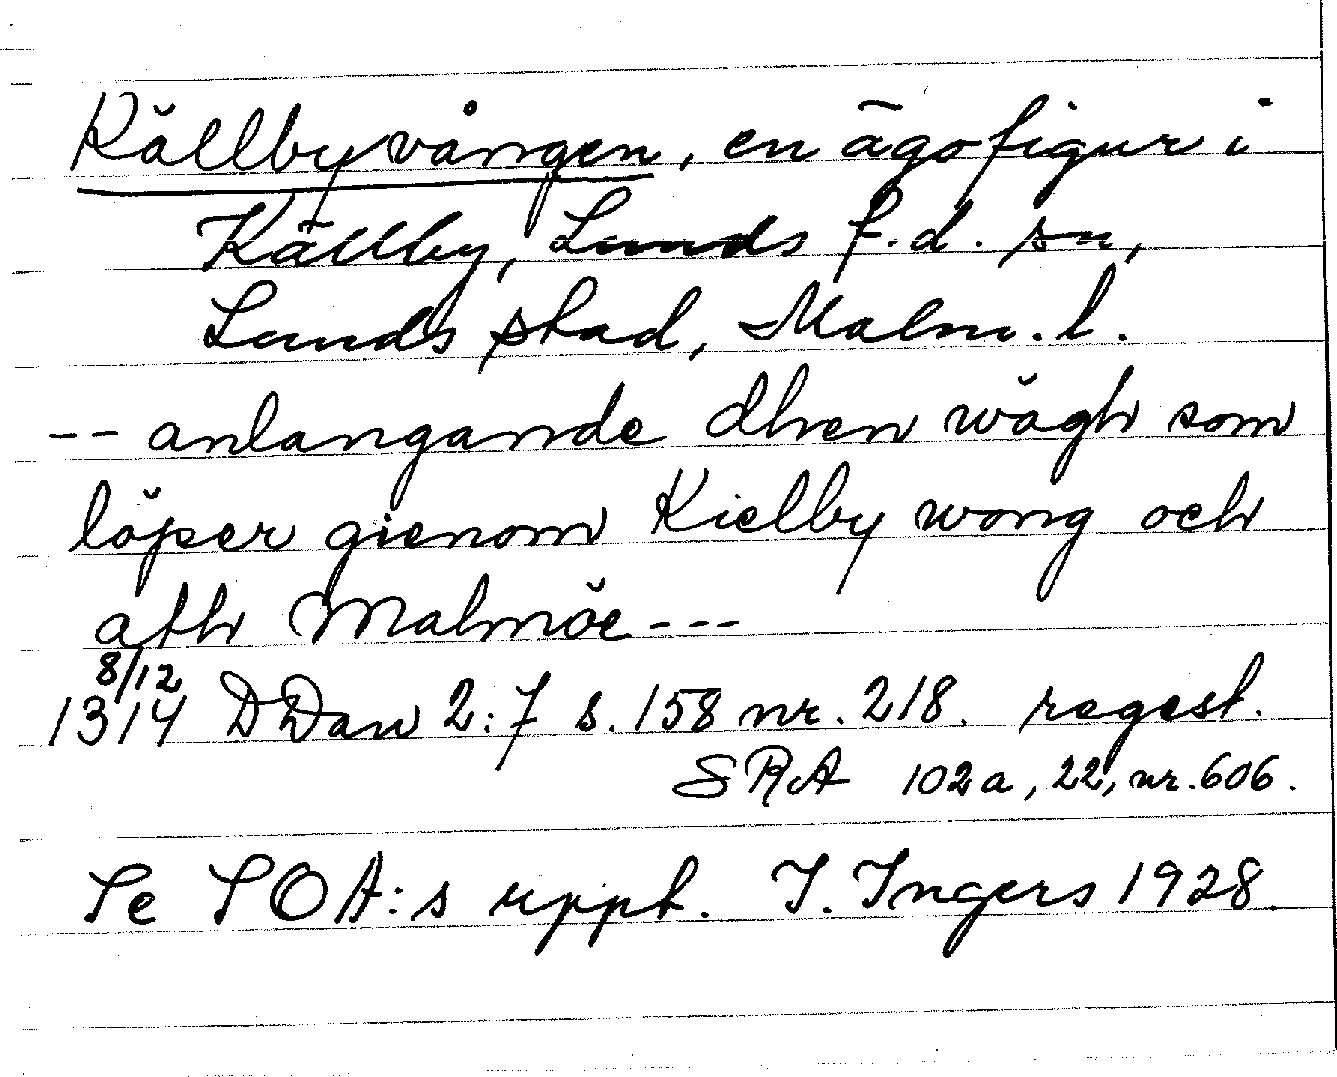 Källbyvången, en ägofigur i
Källby, Lunds f.d. sn,
Lunds stad, Malm. l.
-- anlangande dhen wägh som
löper gienom Kielby wong och
ath Malmöe ---
8/12
1314 DDan 2:7 s. 158 nr. 218. regest.
SRA 102a, 22, nr. 606.
Se SOA:s uppt. I. Ingers 1928.